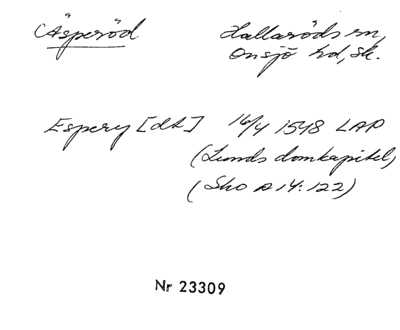 Äsperöd Hallaröds sn,
Onsjö hd, Sk.
Espery [dt.] 16/4 1518 LAP
(Lunds domkapitel,
(Sko A 14:122)
Nr 23309